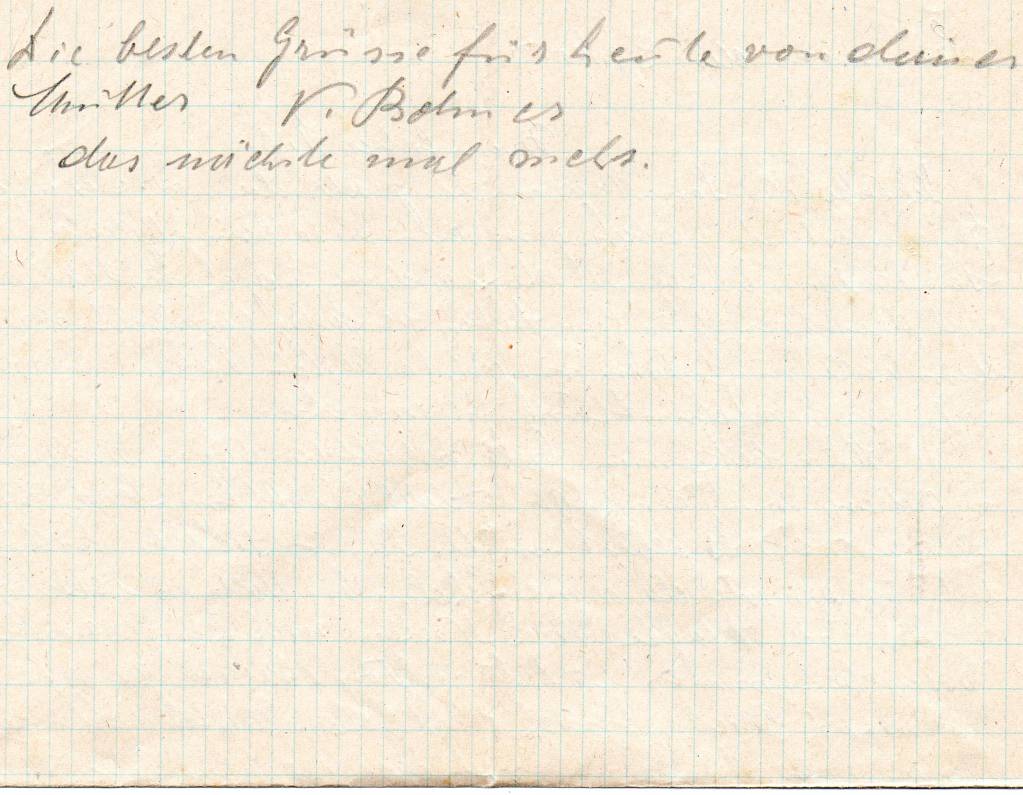 Die besten Grüsse für heute von deiner
Mutter V. Bohmer
das nächste mal mehr.